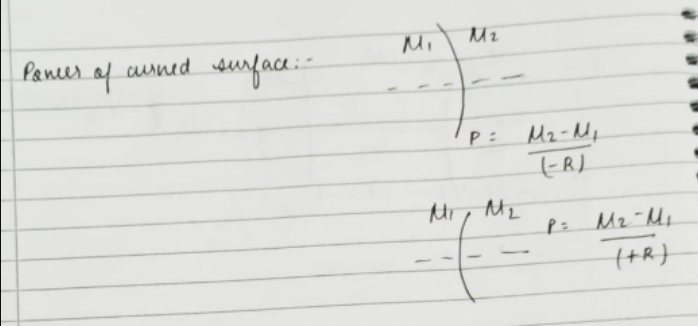 Power of curved surface:-
M₁ M₂
P = M₂-M₁
(-R)
M₁ M₂ P = M₂-M₁
(+R)